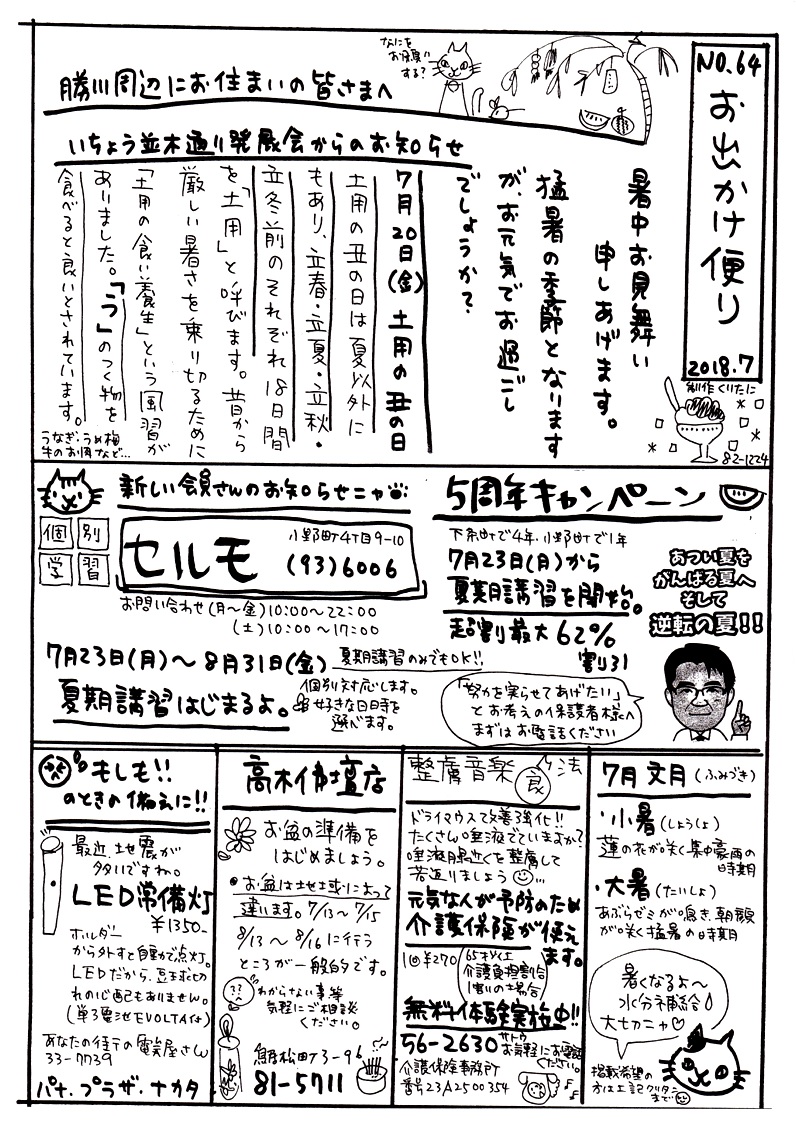 NO.64
お出かけ便り
2018.7
制作くりたに
82-1224
なにを
お願い
する?
勝川周辺にお住まいの皆さまへ
いちょう並木通り発展会からのお知らせ
暑中お見舞い
申しあげます。
猛暑の季節となります
が、お元気でお過ごし
でしょうか?
7月20日(金)土用の丑の日
土用の丑の日は夏以外に
もあり、立春・立夏・立秋・
立冬前のそれぞれ18日間
を「土用」と呼びます。昔から
厳しい暑さを乗り切るために
「土用の食い養生」という風習が
ありました。「う」のつく物を
食べると良いとされています。
うなぎ・うめ梅
牛のお肉など…
新しい会員さんのお知らせニャ
個別
学習
セルモ
小野町4丁目9-10
(93)6006
お問い合わせ(月〜金)10:00〜22:00
(土)10:00〜17:00
7月23日(月)〜8月31日(金)
夏期講習のみでもOK!!
夏期講習はじまるよ。
個別対応します。
好きな日日時を
選べます。
5周年キャンペーン
下条町で4年、小野町で1年
7月23日(月)から
夏期講習を開始。
超割り最大62%
割り引
あつい夏を
がんばる夏へ
そして
逆転の夏!!
「努力を実らせてあげたい」
とお考えの保護者様へ
まずはお電話ください
もしも!!
のときの備えに!!
最近、地震が
多いですね。
LED常備灯
¥1350-
ホルダー
から外すと自動で点灯。
LEDだから、豆球切
れの心配もありません。
(単3電池EVOLTA付)
あなたの街の電気屋さん
33-7739
パナ.プラザ.ナカタ
高木仏壇店
お盆の準備を
はじめましょう。
お盆は地域によって
違います。7/13〜7/15
8/13〜8/16に行う
ところが一般的です。
???
わからない事等
気軽にご相談
ください。
松田町3-96
81-5711
整膚音楽 良 ケ法
ドライマウスで改善強化!!
たくさん唾液でていますか?
唾液腺近くを整膚して
若返りましょう…
元気な人が予防のため
介護保険が使え
ます。
1回¥270
65才以上
介護負担割合
1割りの場合
無料体験実施中!!
56-2630
サトウ
お気軽にお電話
ください。
介護保険事務所
番号23A2500354
7月 文月(ふみづき)
・小暑(しょうしょ)
蓮の花が咲く集中豪雨の
時期
・大暑(たいしょ)
あぶらゼミが鳴き、朝顔
が咲く猛暑の時期
暑くなるよ〜
水分補給
大切ニャ♡
掲載希望の
方は上記クリタニ
まで